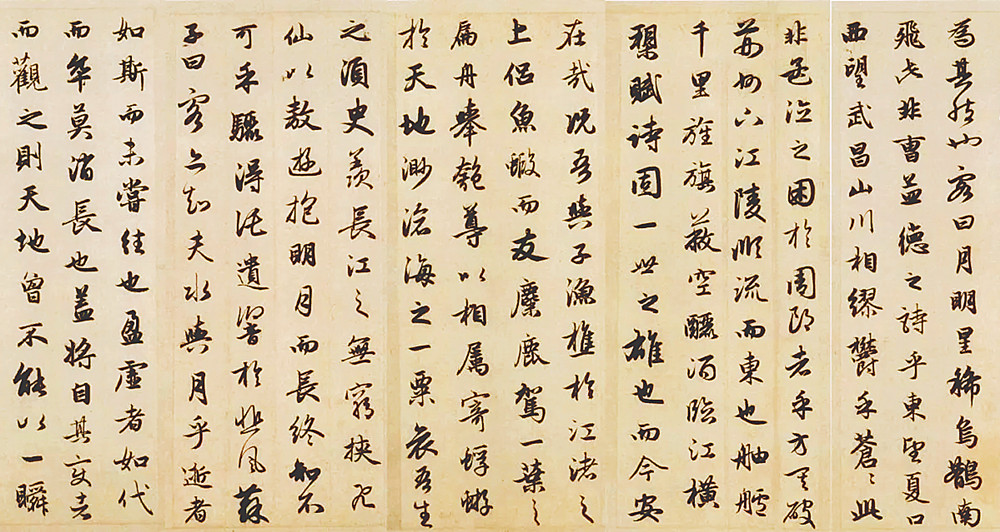 為其然也客曰月明星稀烏鵲南
飛此非曹孟德之詩乎東望夏口
西望武昌山川相繆鬱乎蒼〻此
非孟德之困於周郎者乎方其破
荊州下江陵順流而東也舳艫
千里旌旗蔽空釃酒臨江橫
槊賦詩固一世之雄也而今安
在哉況吾與子漁樵於江渚之
上侶魚鰕而友麋鹿駕一葉之
扁舟舉匏尊以相屬寄蜉蝣
於天地渺滄海之一粟哀吾生
之須臾羨長江之無窮挾飛
仙以敖遊抱明月而長終知不
可乎驟得託遺響於悲風蘇
子曰客亦知夫水與月乎逝者
如斯而未嘗往也盈虛者如代
而卒莫消長也蓋將自其變者
而觀之則天地曾不能以一瞬